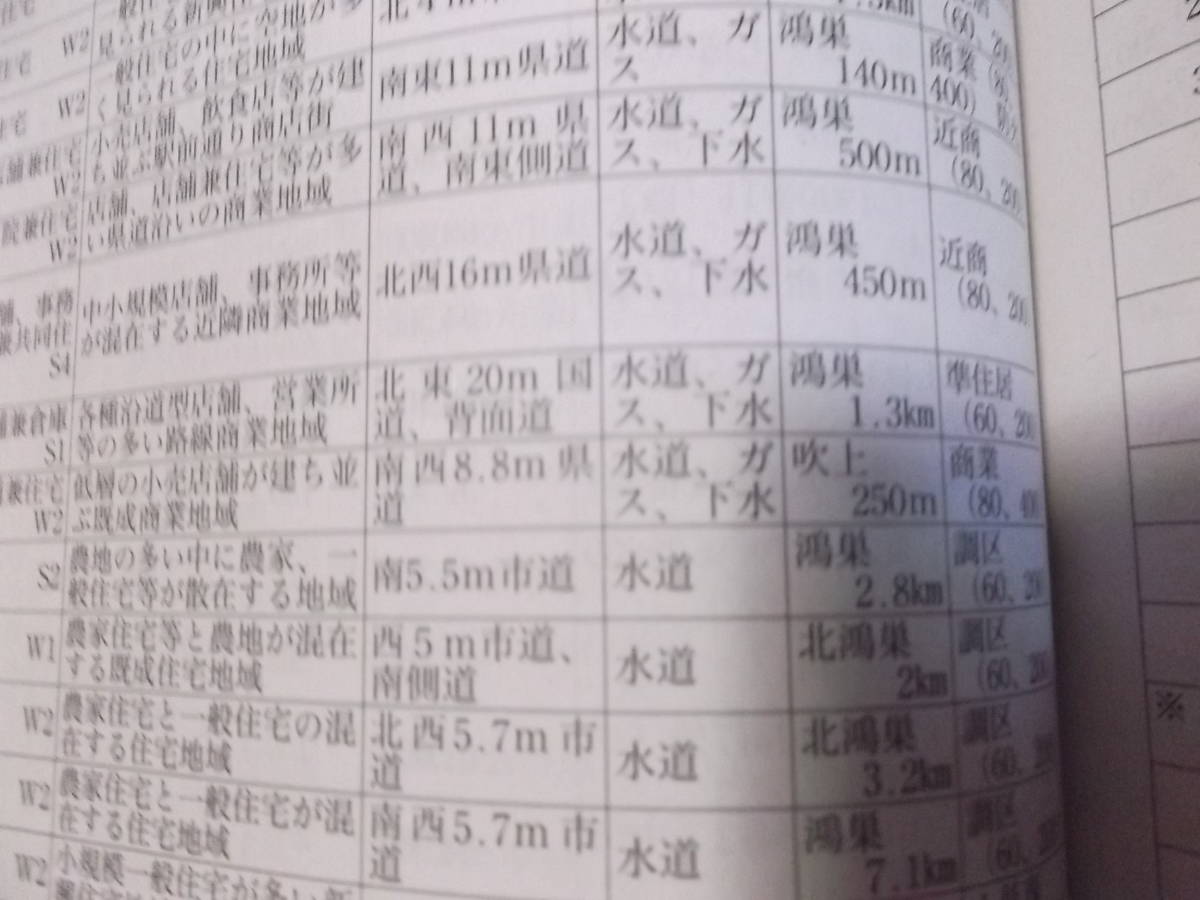 住宅
W2
見られる新興住宅地域
住宅
一般住宅の中に空地が多
W2
く見られる住宅地域
南東11m県道
水道、ガ
ス
鴻巣
140m
商業
(80、
400)
舗兼住宅
小売店舗、飲食店等が建
W2
ち並ぶ駅前通り商店街
南西11m県
道、南東側道
水道、ガ
ス、下水
鴻巣
500m
近商
(80、200)
院兼住宅
店舗、店舗兼住宅等が多
W2
い県道沿いの商業地域
北西16m県道
水道、ガ
ス、下水
鴻巣
450m
近商
(80、200)
舗、事務
共同住
S4
中小規模店舗、事務所等
が混在する近隣商業地域
北東20m国
道、背面道
水道、ガ
ス、下水
鴻巣
1.3km
準住居
(60、200)
舗兼倉庫
S1
各種沿道型店舗、営業所
等の多い路線商業地域
南西8.8m県
道
水道、ガ
ス、下水
吹上
250m
商業
(80、400)
兼住宅
W2
低層の小売店舗が建ち並
ぶ既成商業地域
S2
農地の多い中に農家、一
般住宅等が散在する地域
南5.5m市道
水道
鴻巣
2.8km
調区
(60、200)
W1
農家住宅等と農地が混在
する既成住宅地域
西5m市道、
南側道
水道
北鴻巣
2km
調区
(60、200)
W2
農家住宅と一般住宅の混
在する住宅地域
北西5.7m市
道
水道
北鴻巣
3.2km
調区
W2
農家住宅と一般住宅が混
在する住宅地域
南西5.7m市
道
水道
鴻巣
7.1km
調区
W2
小規模一般住宅が多い新
※